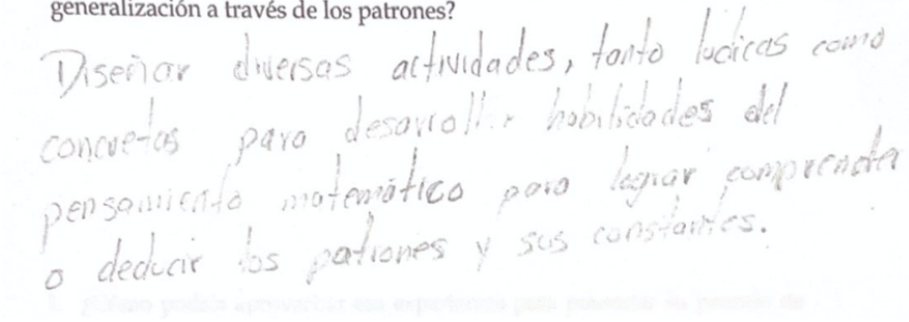 generalización a través de los patrones?
Diseñar diversas actividades, tanto ludicas como
concretas para desarrollar habilidades del
pensamiento matemático para lograr comprender
o deducir los patrones y sus constantes.